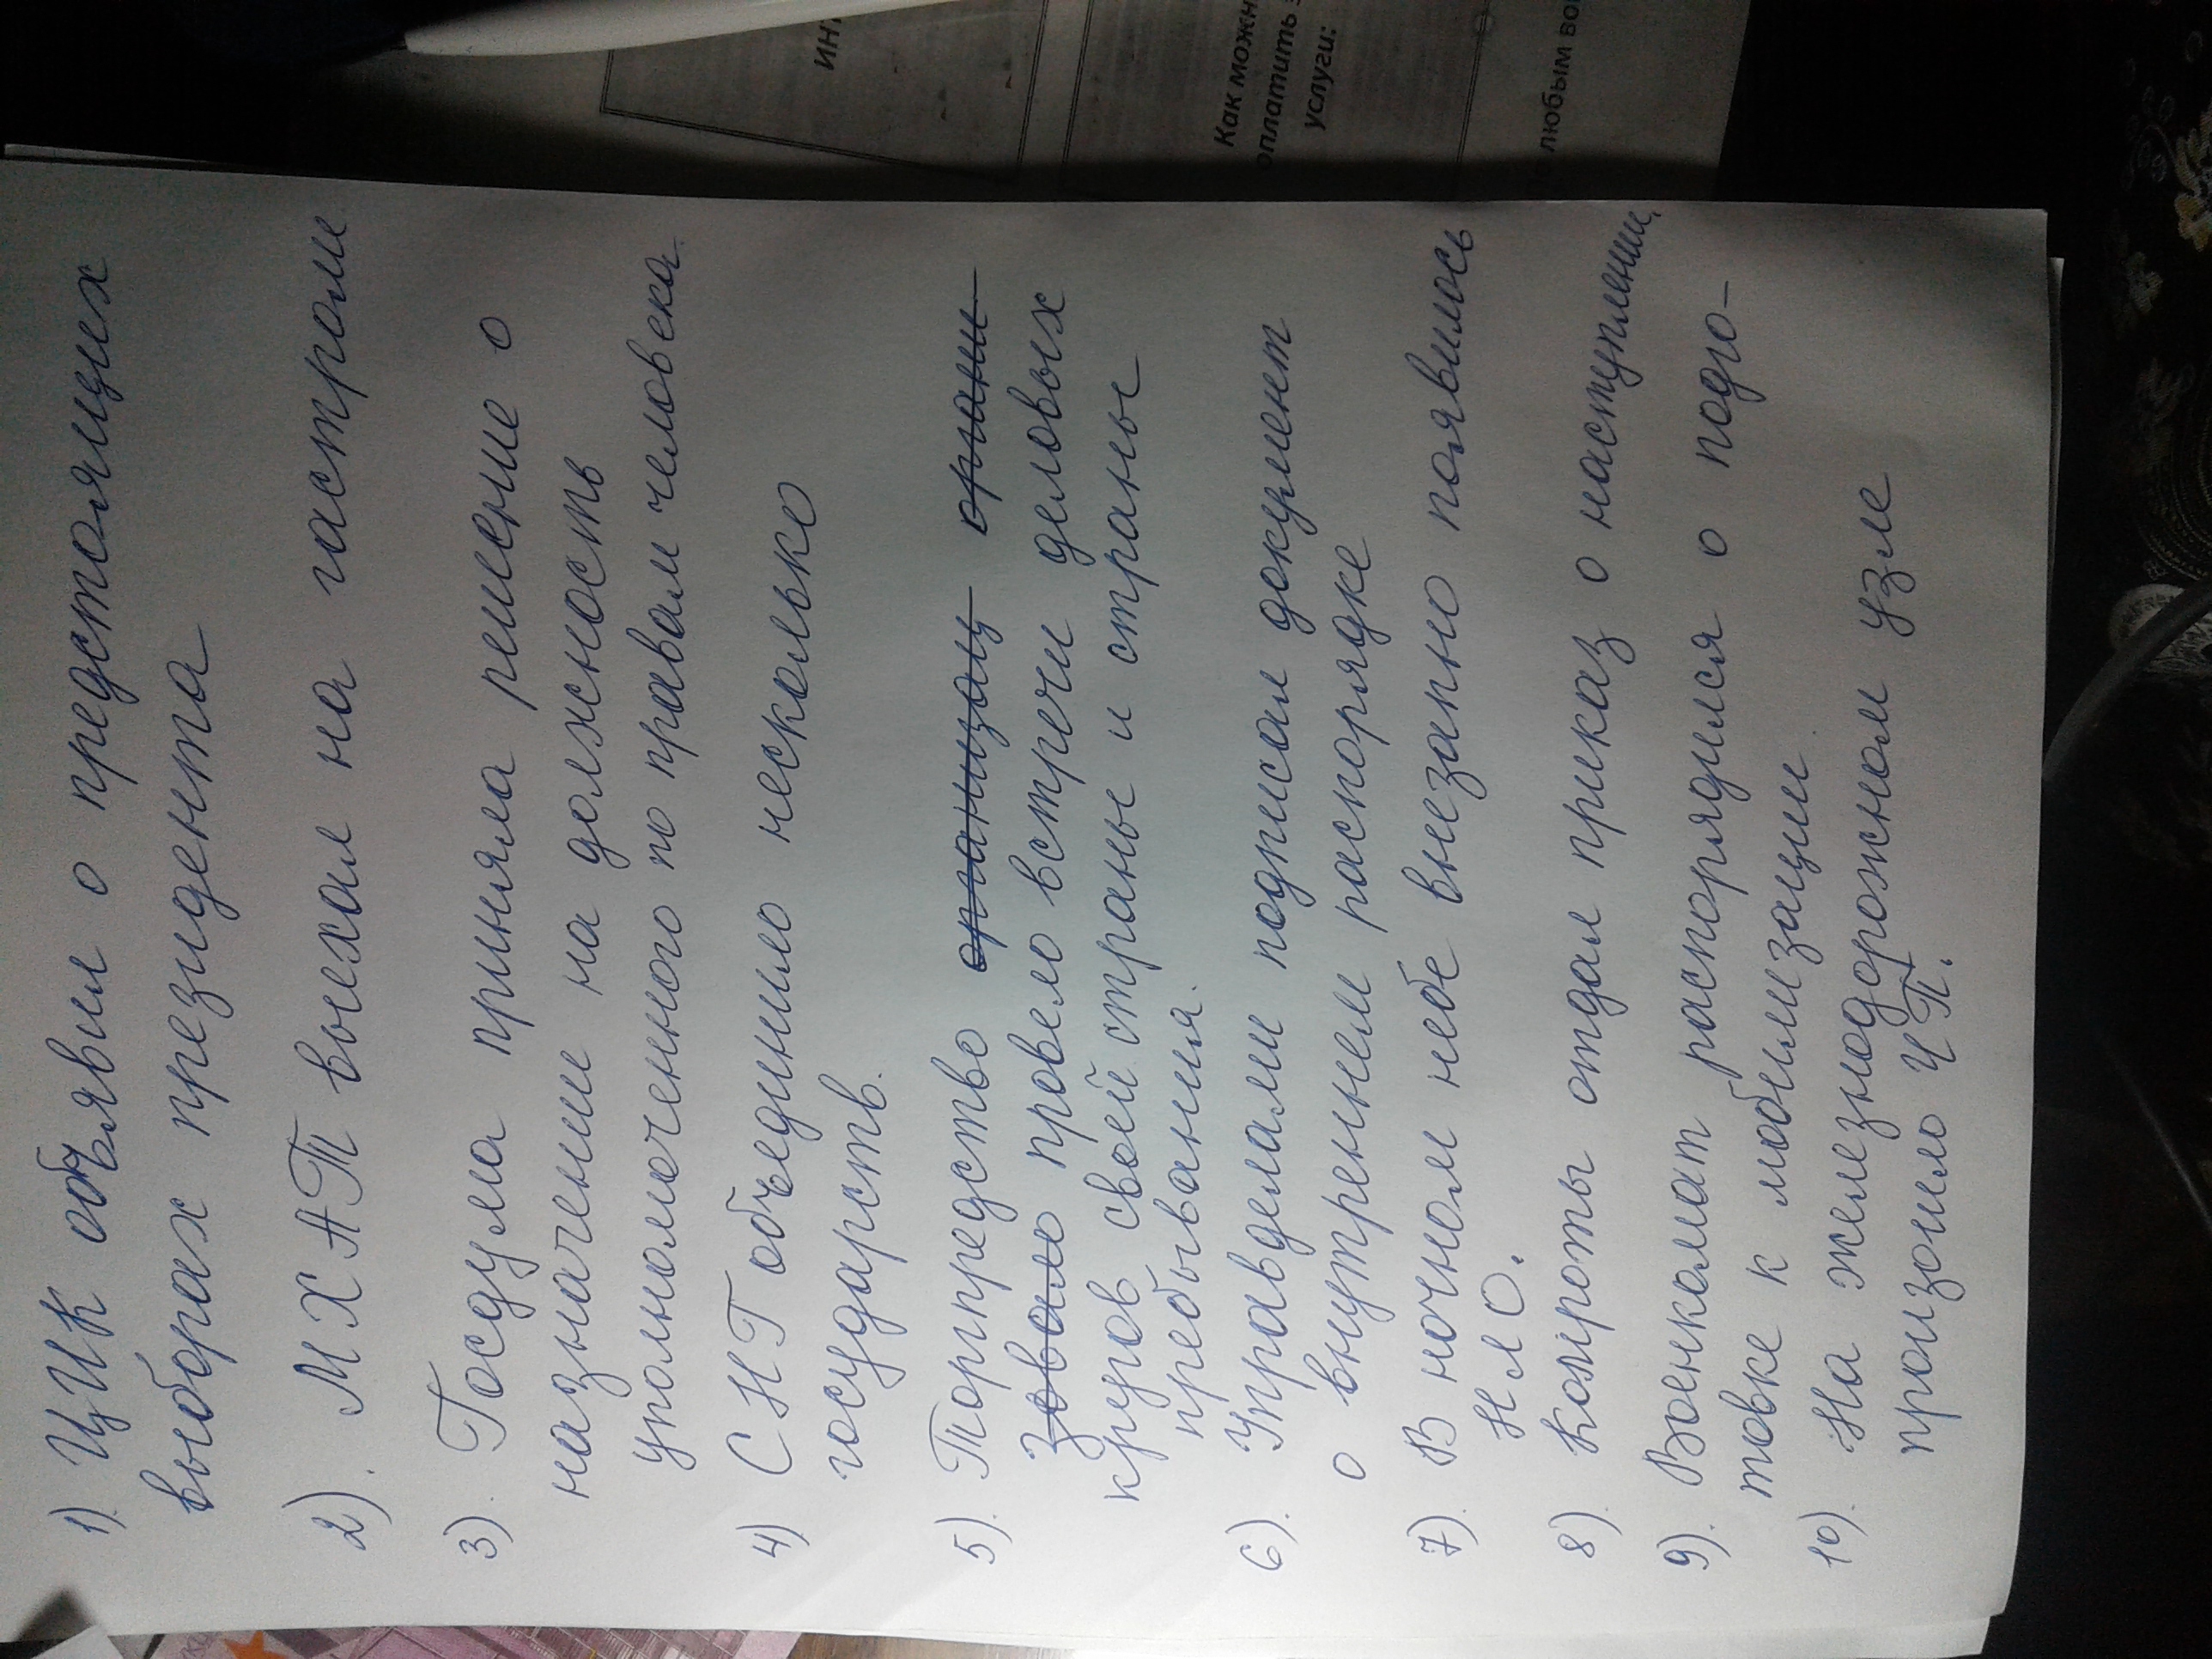 1). ЦИК объявил о предстоящих
выборах президента
2). МХАТ выехал на гастроли
3). Госдума приняла решение о
назначении на должность
уполномоченного по правам человека.
4) СНГ объединило несколько
государств.
5). Торгпредство организу органи
зовало провело встречи деловых
кругов своей страны и страны
пребывания.
6). Управделами подписал документ
о внутреннем распорядке
7). В ночном небе внезапно появилось
НЛО.
8). Комроты отдал приказ о наступлении,
9). Военкомат распорядился о подго-
товке к мобилизации.
10). На железнодорожном узле
произошло ЧП.
Как можн
оплатить
услуги:
любым во
ИН